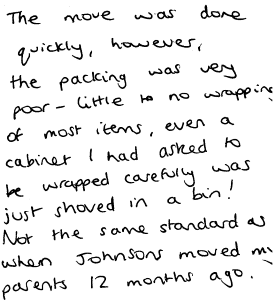 The move was done
quickly, however,
the packing was very
poor - little to no wrapping
of most items, even a
cabinet I had asked to
be wrapped carefully was
just shoved in a bin!
Not the same standard as
when Johnsons moved my
parents 12 months ago.